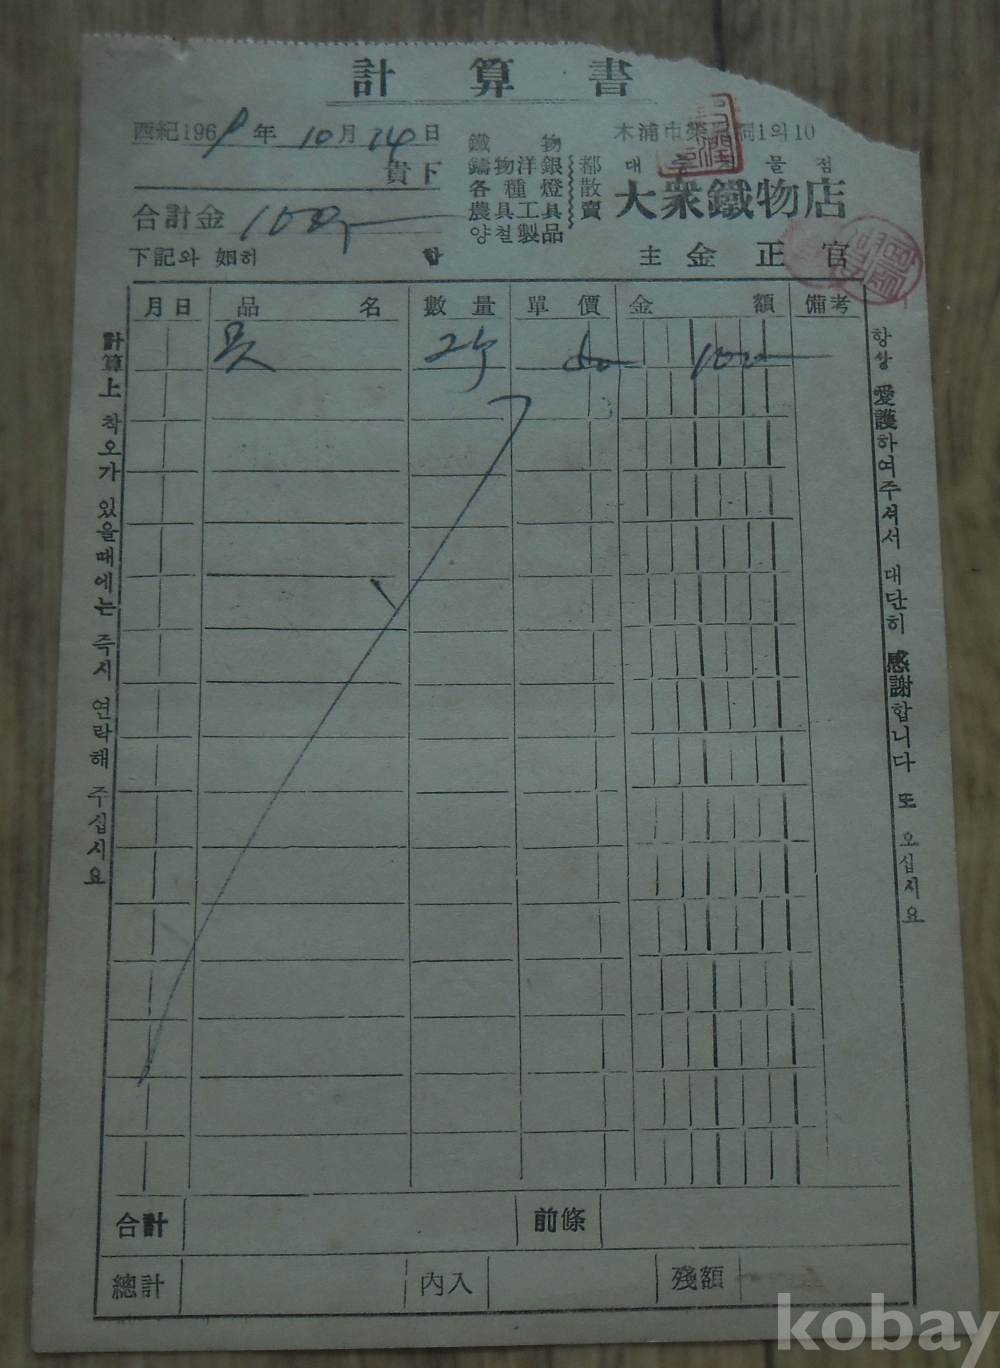 計算書
西紀1969年 10月 14日
木浦市 洞1의10
貴下
鐵物
鑄物洋銀
各種燈
農具工具
양철製品
都散賣
대 철물점
大衆鐵物店
合計金 100
下記와 如히
主 金正官
月日 品名 數量 單價 金額 備考
못 100
計算上 착오가 있을때에는 즉시 연락해 주십시요
항상 愛護하여주셔서 대단히 感謝합니다 또 오십시요
合計 前條
總計 內入 殘額
kobay